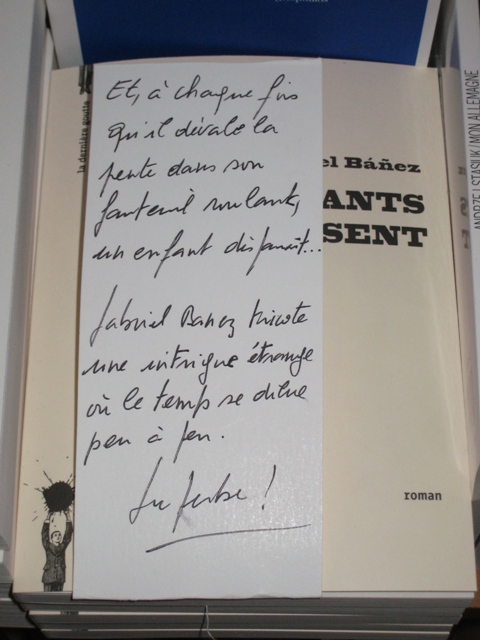 Et, à chaque fois
qu'il dévale la
pente dans son
fauteuil roulant,
un enfant disparaît...
Gabriel Banez tricote
une intrigue étrange
où le temps se dilue
peu à peu.
Superbe !
la dernière goutte
el Báñez
ANTS
SENT
roman
ANDRZEJ STASIUK / MON ALLEMAGNE